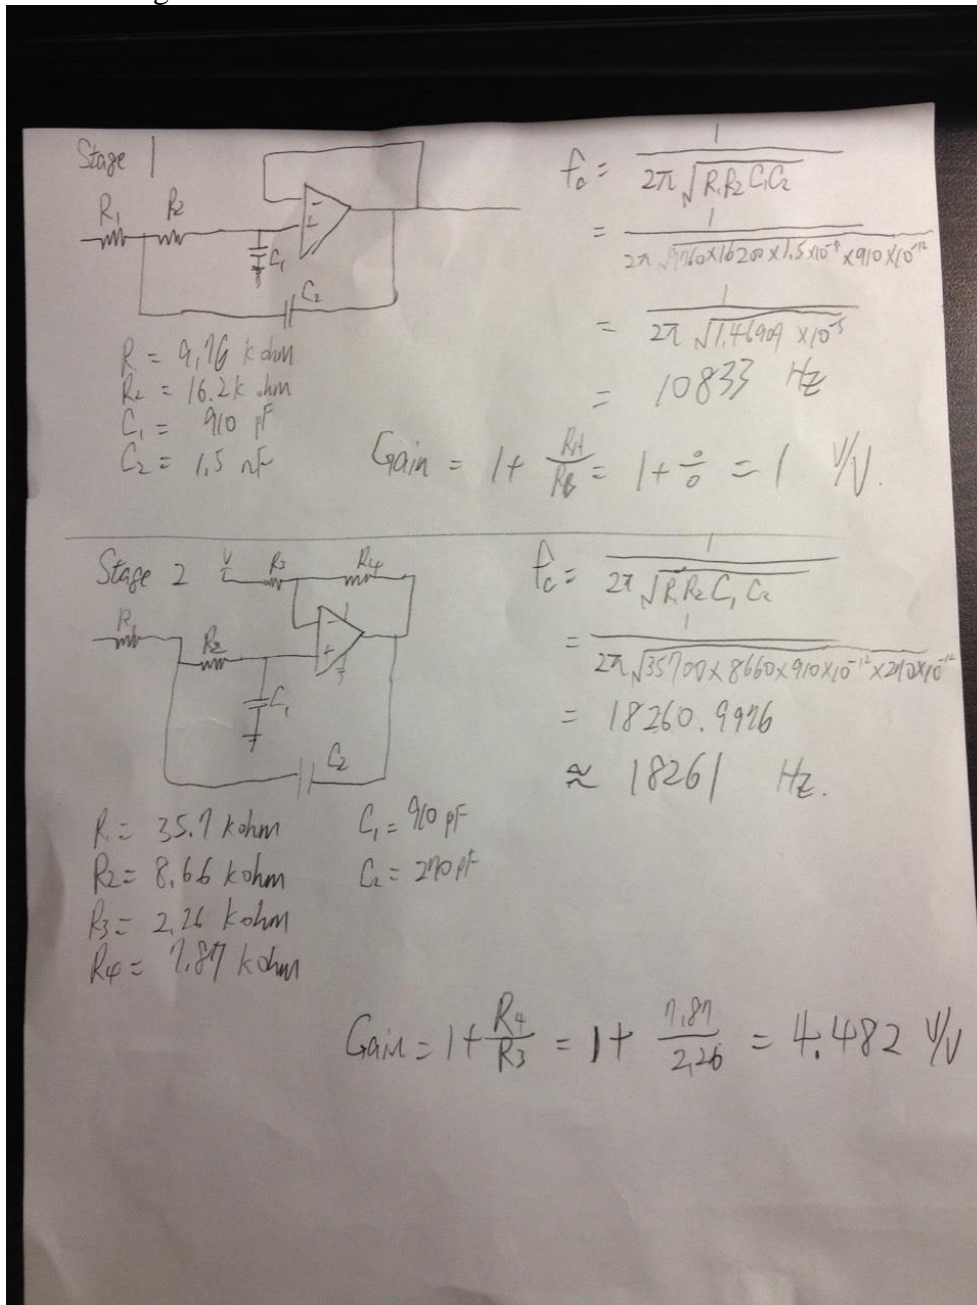 Stage 1
R1 R2
C1
C2
R = 9.76 k ohm
R2 = 16.2k ohm
C1 = 910 pF
C2 = 1.5 nF
fc = 1 / 2π √R1R2C1C2
= 1 / 2π √9760×16200×1.5×10^-9×910×10^-12
= 1 / 2π √1.46909 ×10^-5
= 10833 Hz
Gain = 1 + RA/RB = 1 + 0/0 = 1 V/V.
Stage 2
R3 R4
R
R2
C1
C2
R1 = 35.7 kohm
R2 = 8.66 kohm
R3 = 2.26 kohm
R4 = 7.87 kohm
C1 = 910 pF
C2 = 270 pF
fc = 1 / 2π √R1R2C1C2
= 1 / 2π √35700×8660×910×10^-12×270×10^-12
= 18260.9976
≈ 18261 Hz.
Gain = 1 + R4/R3 = 1 + 7.87/2.26 = 4.482 V/V